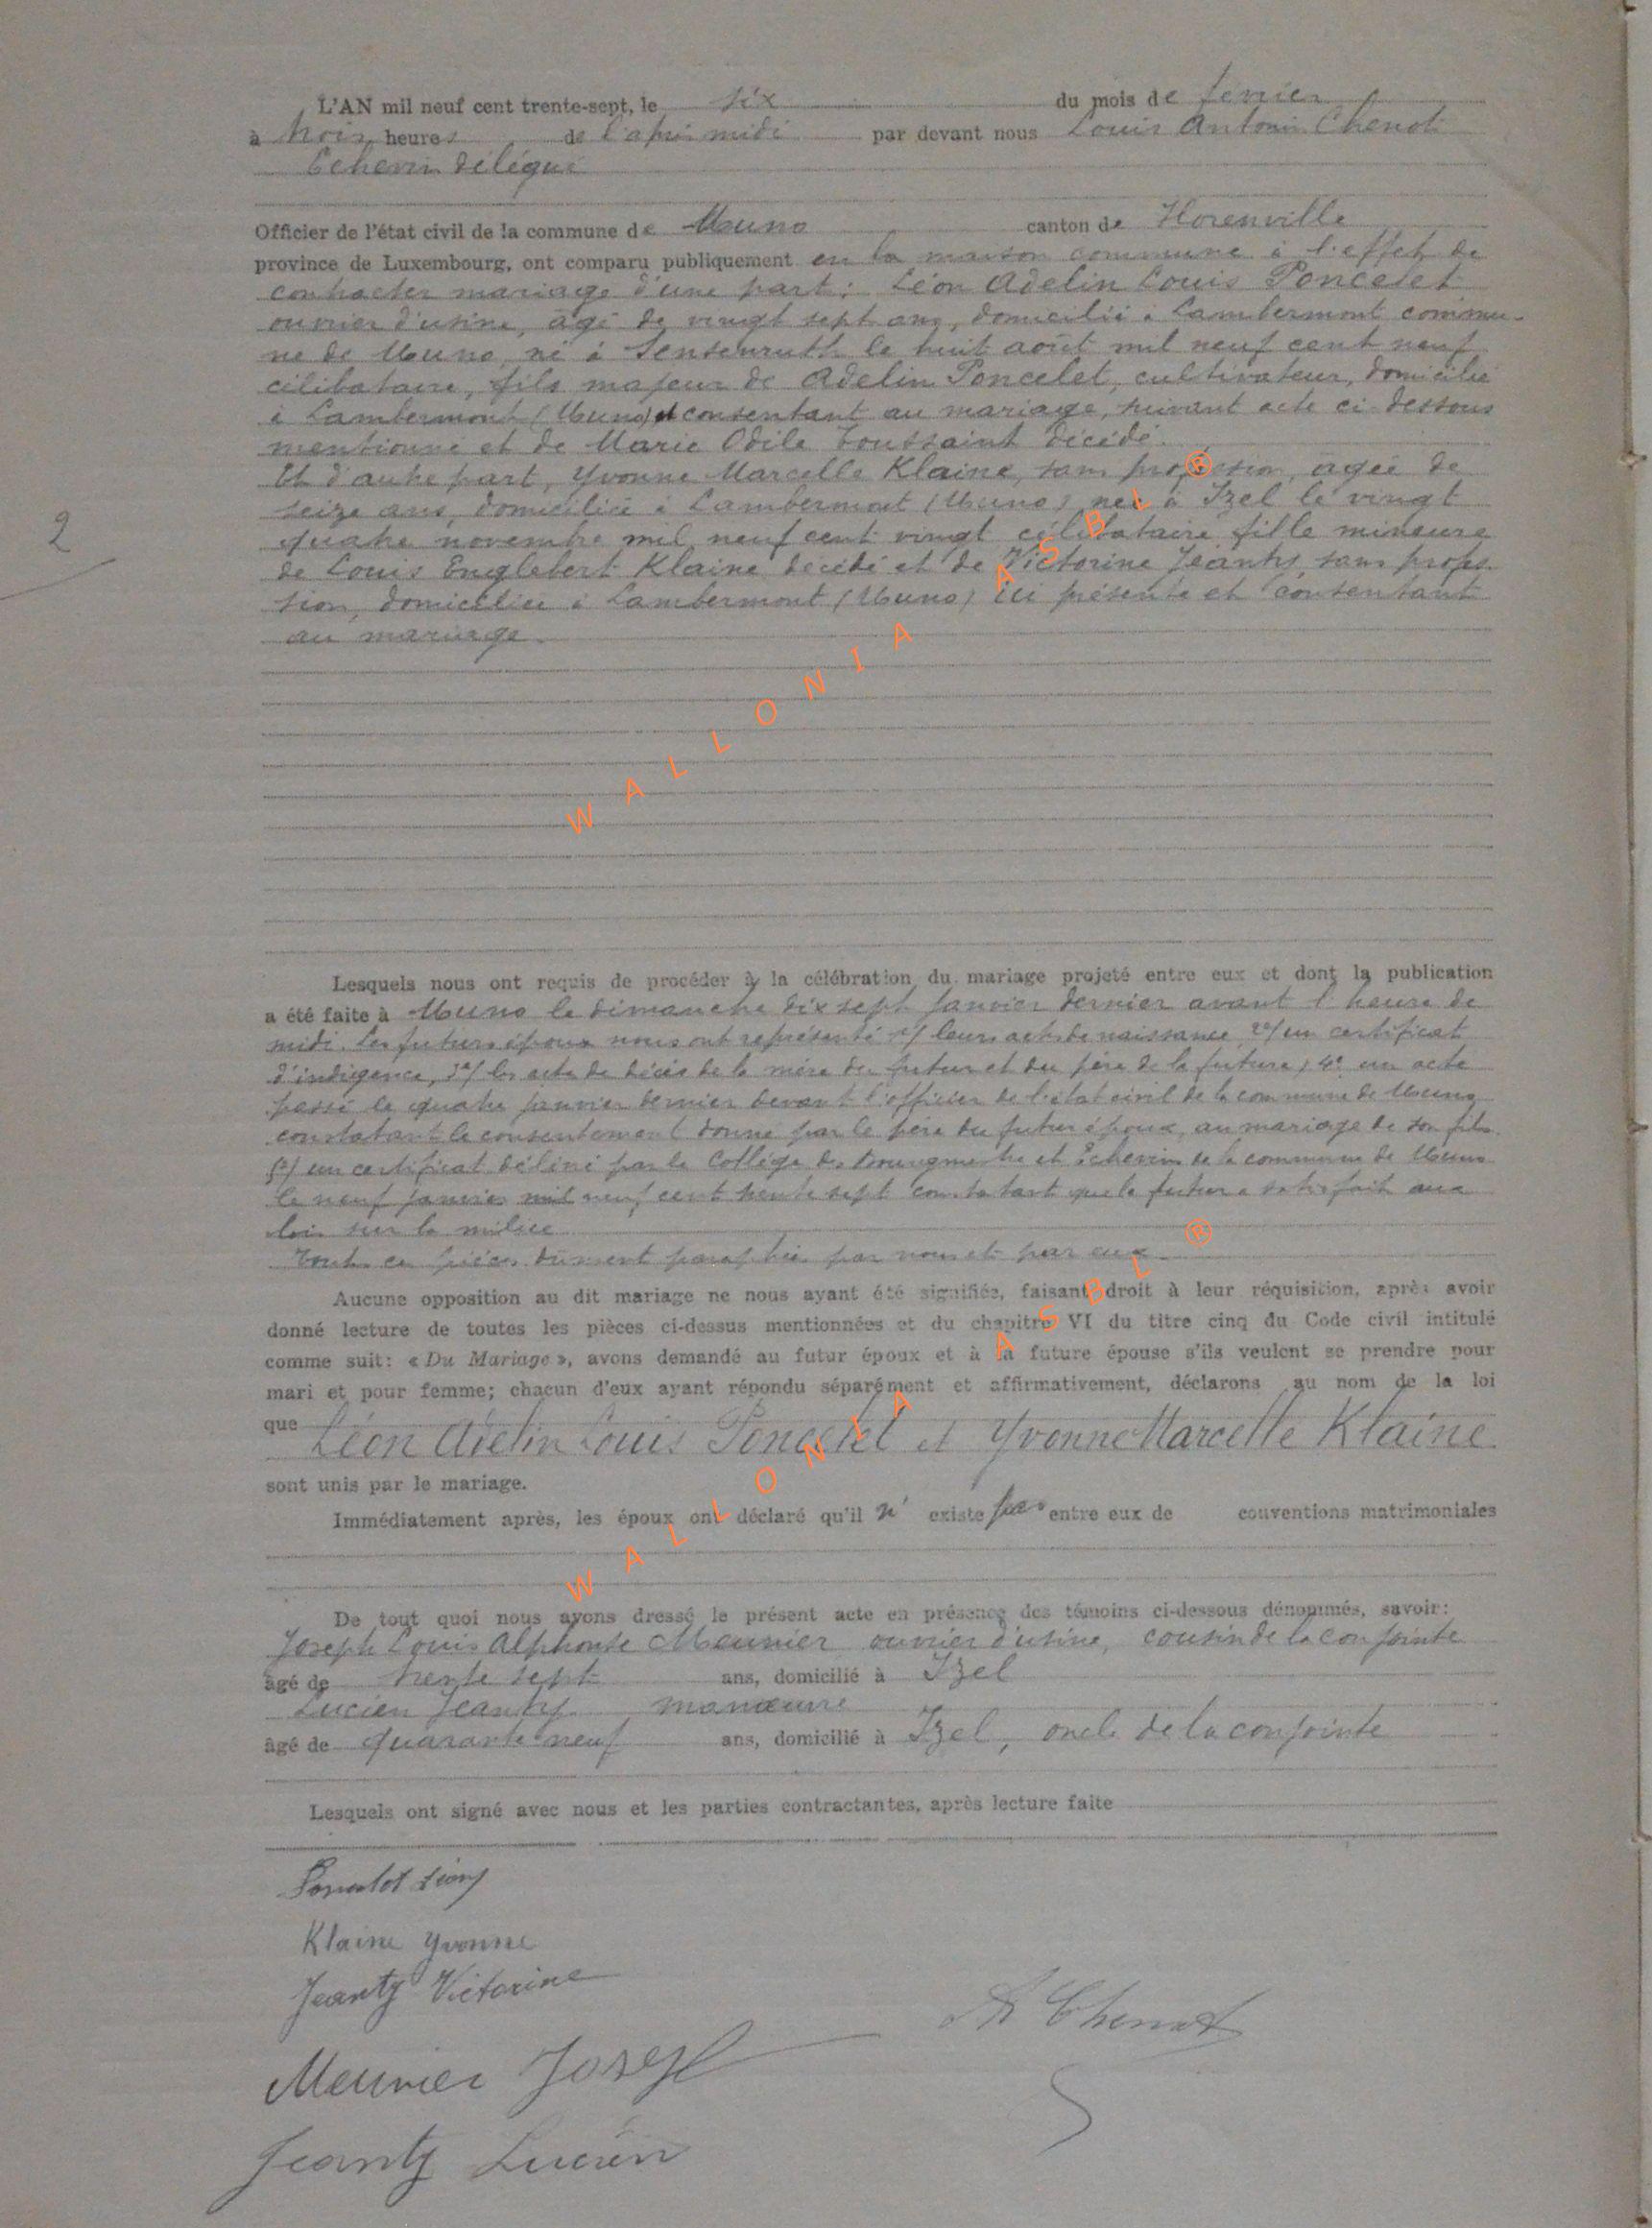 L'AN mil neuf cent trente-sept, le six du mois de fevrier
à trois heures de l'après midi par devant nous Louis Antonin Chenot
Echevin délégué
Officier de l'état civil de la commune de Muno canton de Florenville
province de Luxembourg, ont comparu publiquement en la maison commune à l'effet de
contracter mariage d'une part: Léon Adelin Louis Poncelet
ouvrier d'usine, âgé de vingt sept ans, domicilié à Lambermont commu-
ne de Muno, né à Sensenruth le huit août mil neuf cent neuf
célibataire, fils majeur de Adelin Poncelet, cultivateur, domicilié
à Lambermont (Muno) et consentant au mariage, suivant acte ci-dessous
mentionné et de Marie Odile Toussaint décédé.
Et d'autre part, Yvonne Marcelle Klaine, sans profession, agée de
seize ans, domiciliée à Lambermont (Muno) née à Izel le vingt
2
quatre novembre mil neuf cent vingt célibataire fille mineure
de Louis Englebert Klaine décédé et de Victorine Jeanty, sans profes-
sion, domiciliée à Lambermont (Muno) ici présente et consentant
au mariage.
WALLONIA ASBL ®
Lesquels nous ont requis de procéder à la célébration du mariage projeté entre eux et dont la publication
a été faite à Muno le dimanche dix sept janvier dernier avant l'heure de
midi. Les futurs époux nous ont représenté 1°/ leurs acte de naissance 2°/ un certificat
d'indigence, 3°/ les acte de décès de la mère du futur et du père de la future; 4° un acte
passé le quatre janvier dernier devant l'officier de l'état civil de la commune de Muno
constatant le consentement donné par le père du futur époux, au mariage de son fils.
5°/ un certificat délivré par le Collège des Bourgmestre et Echevins de la commune de Muno
le neuf janvier mil neuf cent trente sept constatant que le futur a satisfait aux
lois sur la milice
Toutes ces pièces dûment paraphées par nous et par eux.
Aucune opposition au dit mariage ne nous ayant été signifiée, faisant droit à leur réquisition, après avoir
donné lecture de toutes les pièces ci-dessus mentionnées et du chapitre VI du titre cinq du Code civil intitulé
comme suit: « Du Mariage », avons demandé au futur époux et à la future épouse s'ils veulent se prendre pour
mari et pour femme; chacun d'eux ayant répondu séparément et affirmativement, déclarons au nom de la loi
que Léon Adelin Louis Poncelet et Yvonne Marcelle Klaine
sont unis par le mariage.
Immédiatement après, les époux ont déclaré qu'il n' existe pas entre eux de conventions matrimoniales
WALLONIA ASBL ®
De tout quoi nous avons dressé le présent acte en présence des témoins ci-dessous dénommés, savoir:
Joseph Louis Alphonse Meunier ouvrier d'usine, cousin de la conjointe
âgé de trente sept ans, domicilié à Izel
Lucien Jeanty manoeuvre
âgé de quarante neuf ans, domicilié à Izel, oncle de la conjointe
Lesquels ont signé avec nous et les parties contractantes, après lecture faite
Poncelet Léon
Klaine Yvonne
Jeanty Victorine
A Chenot
Meunier Joseph
Jeanty Lucien